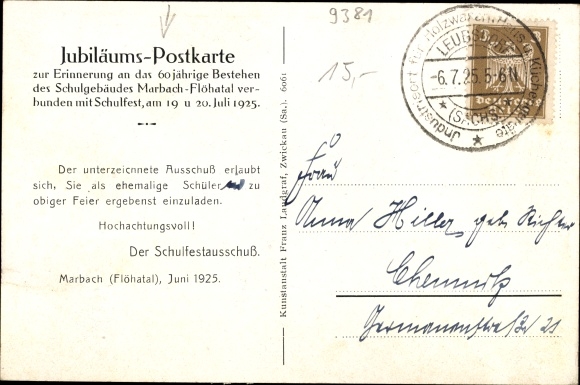 Jubiläums-Postkarte
zur Erinnerung an das 60jährige Bestehen
des Schulgebäudes Marbach-Flöhatal ver-
bunden mit Schulfest, am 19 u 20. Juli 1925.
Der unterzeichnete Ausschuß erlaubt
sich, Sie als ehemalige Schüler zu
obiger Feier ergebenst einzuladen.
Hochachtungsvoll!
Der Schulfestausschuß.
Marbach (Flöhatal), Juni 1925.
Kunstanstalt Franz Landgraf, Zwickau (Sa.). 6061
9381
15,-
LEUBSDORF
-6.7.25.5-6N
(SACHS)
Industrieort für Holzwaren, Haus- u. Küchengeräte
8
Frau
Anna Hiller, geb. Richter
Chemnitz
Germanenstraße 21